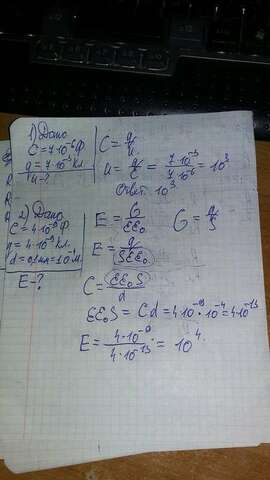 1) Дано
C = 7·10⁻⁶ Ф
q = 7·10⁻³ Кл
U - ?
C = q/u
u = q/C = 7·10⁻³/7·10⁻⁶ = 10³
Ответ: 10³
2) Дано
C = 4·10⁻⁹ Ф
q = 4·10⁻⁹ Кл.
E - ?
E = σ/εε₀
σ = q/S
E = q/Sεε₀
C = εε₀S/d
εε₀S = Cd = 4·10⁻⁹·10⁻⁴ = 4·10⁻¹³
E = 4·10⁻⁹/4·10⁻¹³ = 10⁴.